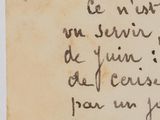 Ce n'est
vu servir
de juin :
de cerise
par un je